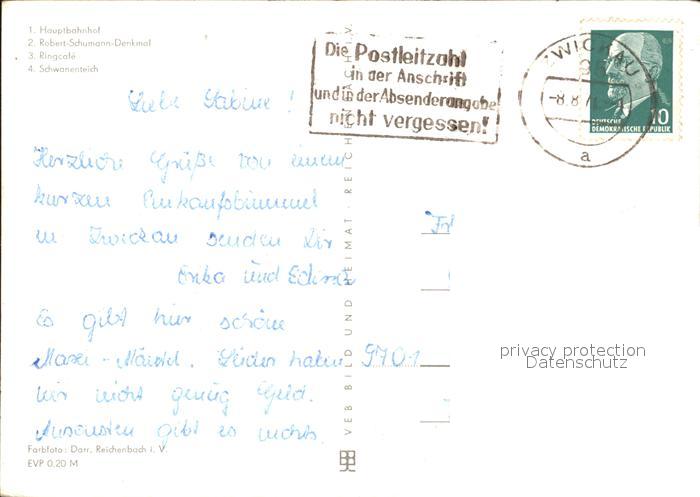 1. Hauptbahnhof
2. Robert-Schumann-Denkmal
3. Ringcafé
4. Schwanenteich
Die Postleitzahl
in der Anschrift
und in der Absenderangabe
nicht vergessen!
ZWICKAU
-8.8.
a
10
DEUTSCHE
DEMOKRATISCHE REPUBLIK
Liebe Sabine!
Herzliche Grüße von einem
kurzen Einkaufsbummel
in Zwickau senden Dir
Erika und
Es gibt hier schöne
Maxi-Mäntel. Leider haben
wir nicht genug Geld.
Ansonsten gibt es nichts.
Fr
9701
privacy protection
Datenschutz
VEB BILD UND HEIMAT · REICHENBACH I. V.
Farbfoto: Darr, Reichenbach i. V.
EVP 0,20 M